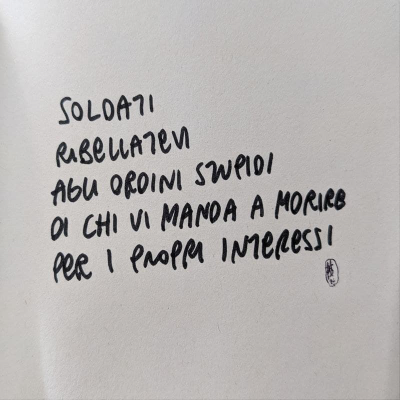 SOLDATI
RIBELLATEVI
AGLI ORDINI STUPIDI
DI CHI VI MANDA A MORIRE
PER I PROPRI INTERESSI